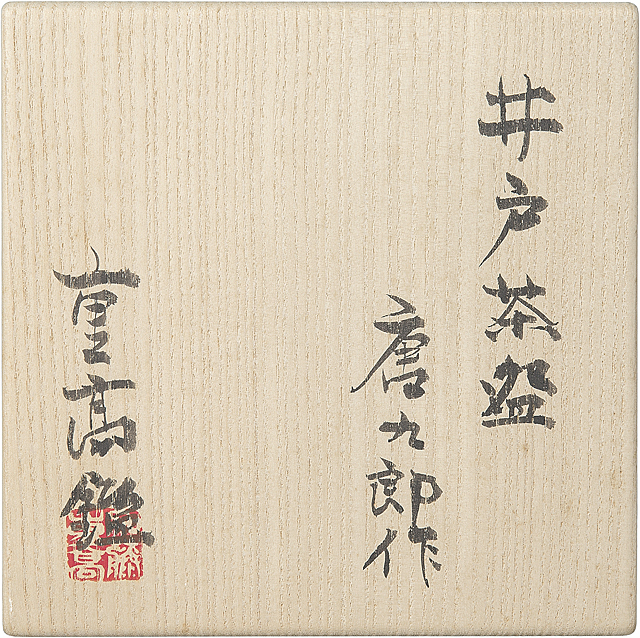 井戸茶盌
唐九郎作
重高鑑